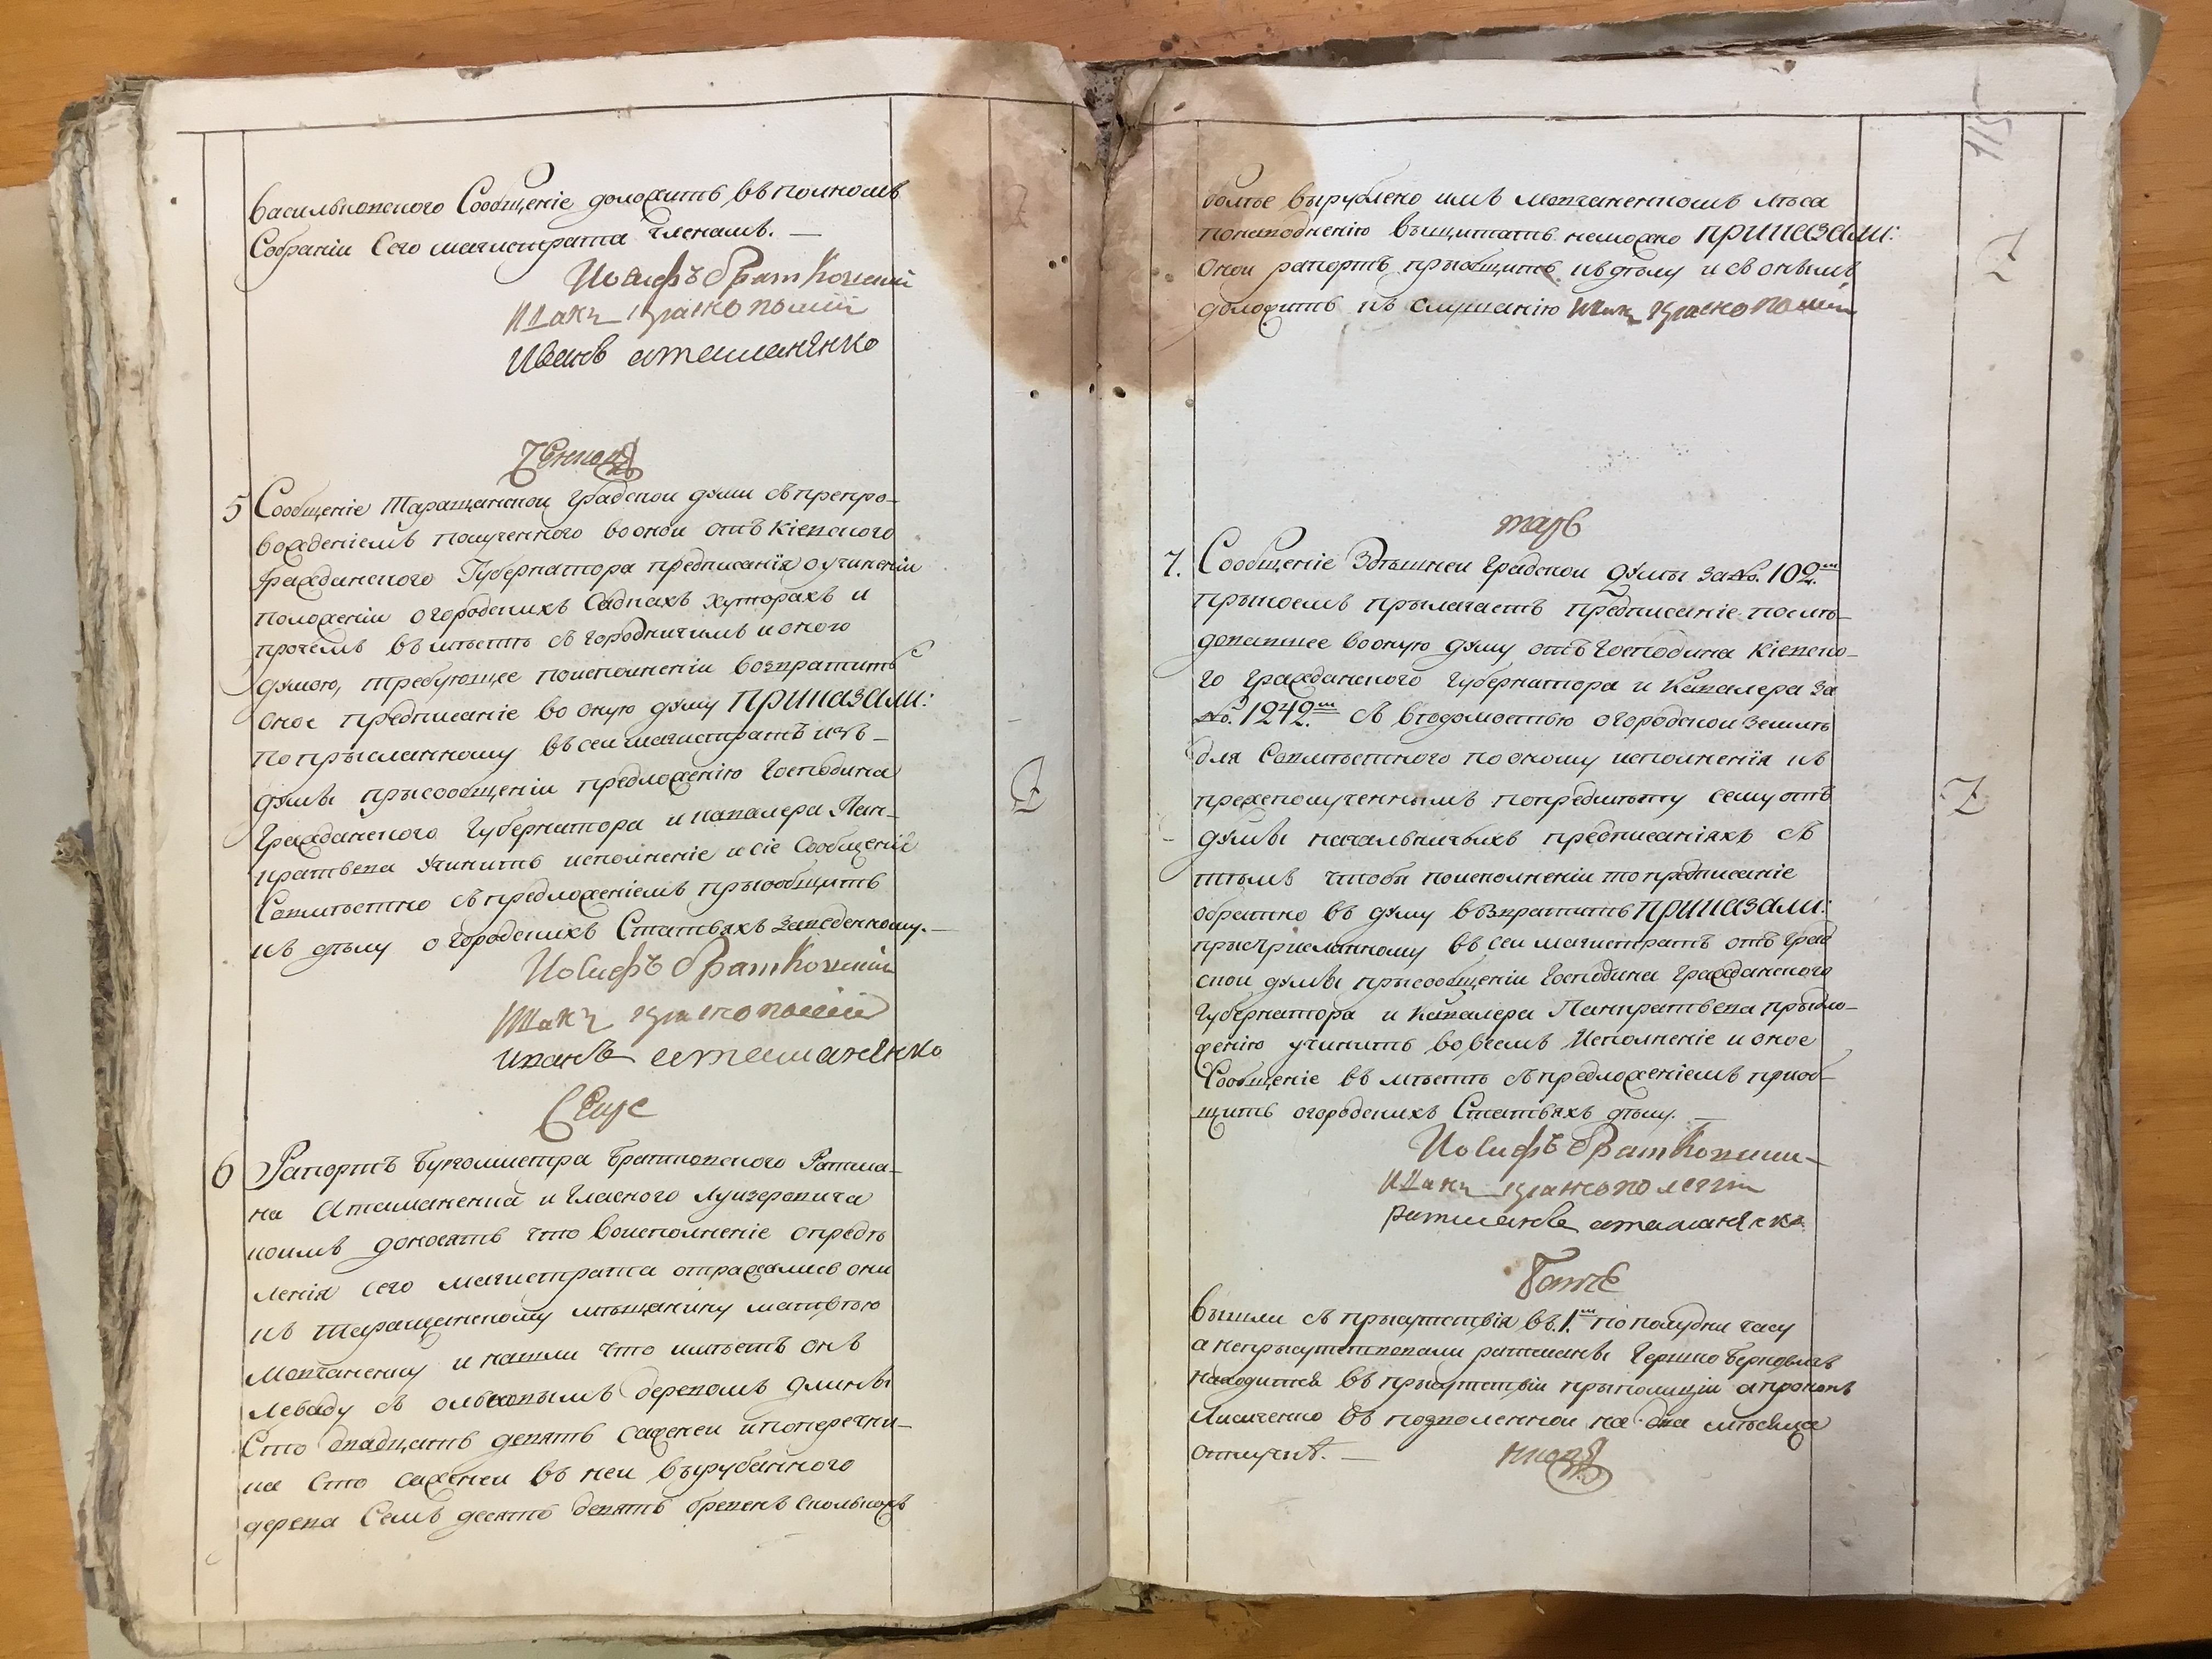 васильковского Сообщеніе доложить въ полномъ
Собраніи Сего магистрата членамъ. —
Иосифъ Братковский
Иванъ атаманЯнко
5 Сообщеніе Таращанской градской думи съ препро-
вожденіемъ полученного во оной отъ Кіевского
гражданского Губернатора предписанія о учиненіи
положеніи о городскихъ Садпахъ хуторахъ и
протчемъ вѣместѣ съ городничимъ и оного
думою, требующее поисполненіи возвратить
оное предписаніе во оную думу приказали:
по прысланному въ сеи магистратъ изъ-
думы прысообщеніи предложенію Господина
Гражданского Губернатора и кавалера Пан-
кратьева учинить исполненіе и сіе Сообщеніе
Совмѣстно съ предложеніемъ прыобщить
къ дѣлу о городскихъ Статьяхъ заведенному. —
Иосифъ Братковский
иванъ атаманЯнко
6 Рапортъ Бургомистра Братковского Ратма-
на Атаманенка и гласного Луцкевича
коимъ доносятъ что воисполненіе опредѣ
ленія сего магистрата отражались они
къ таращанскому мѣщанину матвѣю
Мовчаненку и нашли что имѣетъ онъ
Лебаду съ ольховымъ деревомъ длины
Сто двадцать девять саженеи и поперечни-
ка Сто саженеи въ неи вырубанного
дерева Семъ десято девять бревенъ сколькожъ
115
болѣе вырублено имъ Мовчаненкомъ лѣса
поисполненію выщитать неможно приказали:
оной рапортъ прыобщить къ дѣлу и съ онымъ
доложить къ слушанію
7. Сообщеніе Здѣшнеи градской думы за №. 102.м
прыкоемъ прылагаетъ предписаніе послѣ-
довавшее во оную думу отъ Господина Кіевско-
го гражданского губернатора и Кавалера за
№. 1242.м съ вѣдомостью о городской землѣ
для Совмѣстного по оному исполненія къ
прежеполученнымъ попредмѣту сему отъ
думы начальничьихъ предписаніяхъ съ
тѣмъ чтобы поисполненіи то предписаніе
обратно въ думу възвратить приказали:
прысланному въ сеи магистратъ отъ град
скои думы прысообщеніи Господина Гражданского
Губернатора и Кавалера Панкратьева прыдло-
женію учинить во всемъ Исполненіе и оное
Сообщеніе въ мѣстѣ съ предложеніемъ приоб-
щить о городскихъ Статьяхъ дѣлу. —
Иосифъ Братковски
ратманъ атаманЯнко
вышли съ прысутствія въ. 1.м по полудни часу
а непрысутствовали ратманы Гершко Берковичъ
находится въ прысутствіи прыполиціи а прокопъ
Лисиченко въ позволенной на два мѣсяца
отпускъ. —